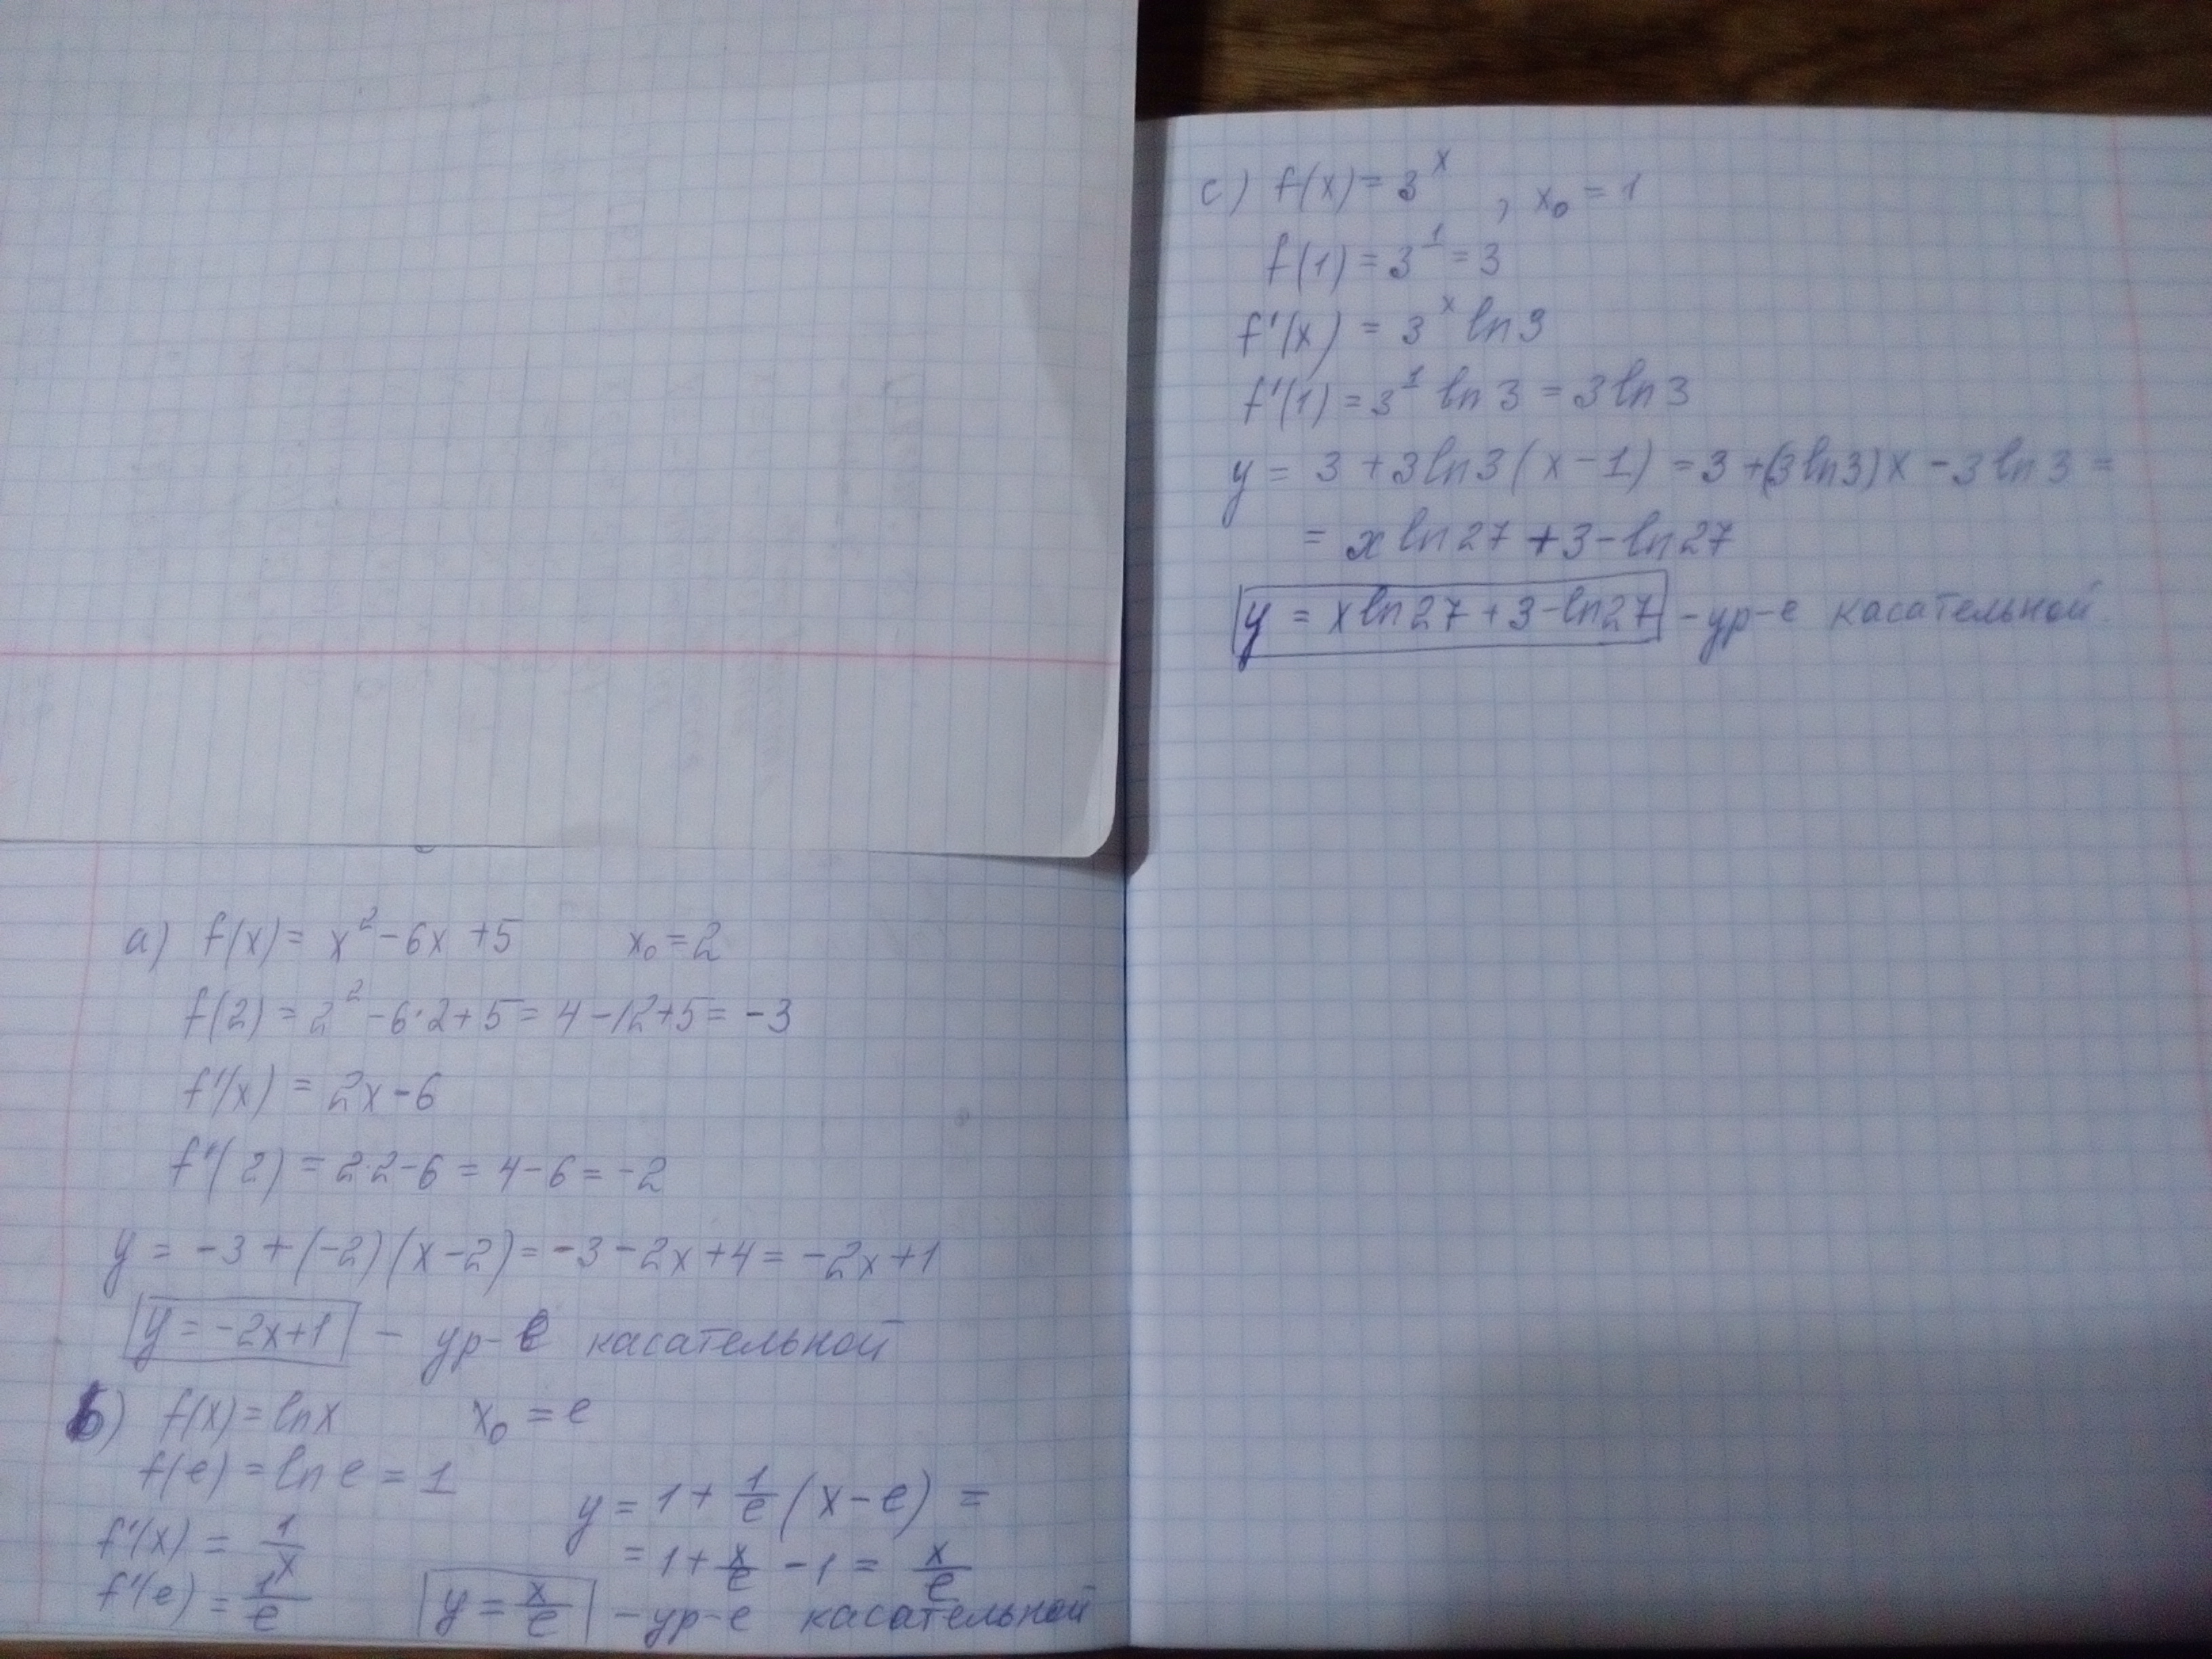 a) f(x) = x² - 6x + 5 x₀ = 2
f(2) = 2² - 6·2 + 5 = 4 - 12 + 5 = -3
f'(x) = 2x - 6
f'(2) = 2·2 - 6 = 4 - 6 = -2
y = -3 + (-2)(x - 2) = -3 - 2x + 4 = -2x + 1
y = -2x + 1 - ур-е касательной
б) f(x) = ln x x₀ = e
f(e) = ln e = 1
f'(x) = 1/x
f'(e) = 1/e
y = 1 + 1/e (x - e) =
= 1 + x/e - 1 = x/e
y = x/e - ур-е касательной
c) f(x) = 3ˣ , x₀ = 1
f(1) = 3¹ = 3
f'(x) = 3ˣ ln 3
f'(1) = 3¹ ln 3 = 3 ln 3
y = 3 + 3 ln 3 (x - 1) = 3 + (3 ln 3) x - 3 ln 3 =
= x ln 27 + 3 - ln 27
y = x ln 27 + 3 - ln 27 - ур-е касательной.